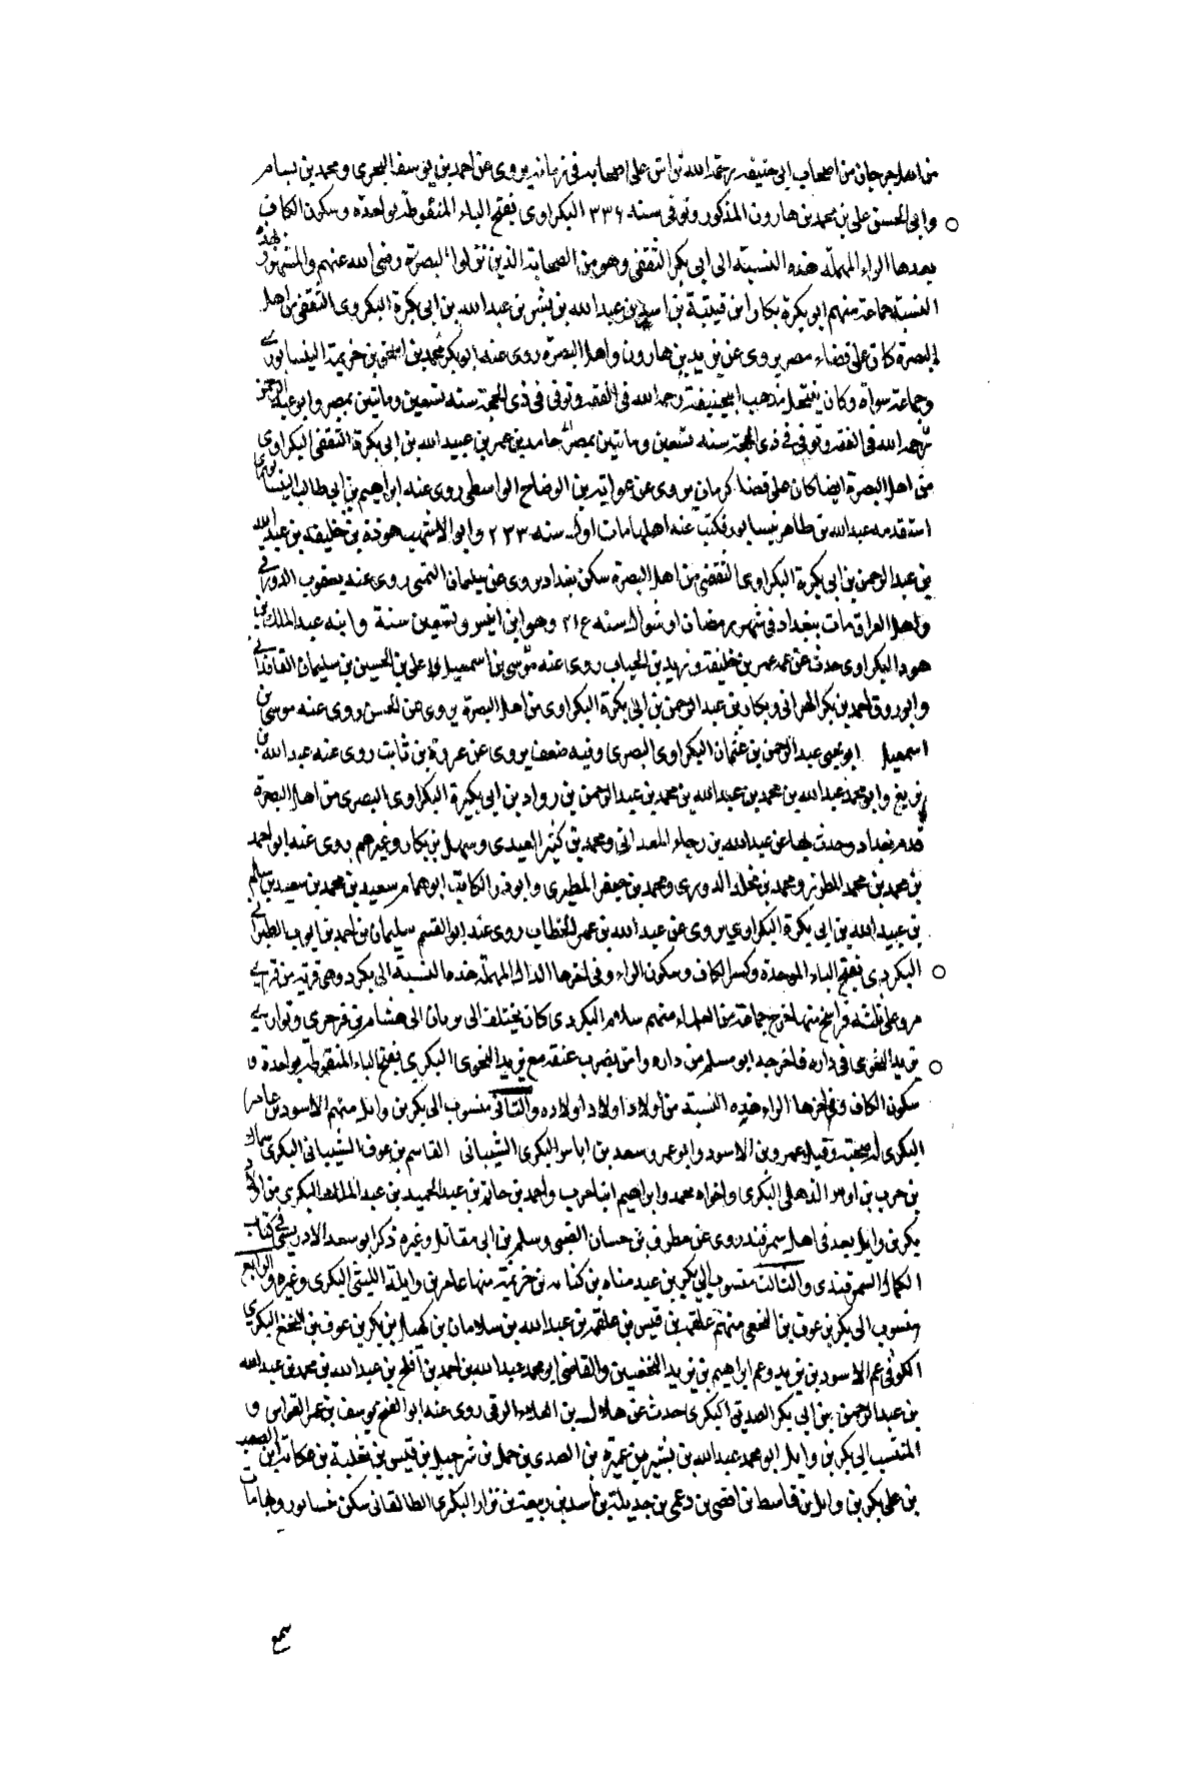 من اهل جرجان من اصحاب ابى حنيفه رحمة الله تراس على اصحابه فى زمانه يروى عن احمد بن يوسف البحرى ومحمد بن بسام
وابى الحسن على بن محمد بن هارون المذكور وتوفى سنة ٣٣٦ البكراوى بفتح الباء المنقوطة بواحدة وسكون الكاف
بعدها الراء المهملة هذه النسبة الى ابى بكرة الثقفى وهو من الصحابة الذين نزلوا البصرة رضى الله عنهم والمشهور بهذه
النسبة جماعة منهم ابو بكرة بكار ابن قيتبة بن اسد بن عبدالله بن بشر بن عبدالله بن ابى بكرة البكروى الثقفى من اهل
البصرة كان على قضاء مصر يروى عن يزيد بن هارون واهل البصرة روى عنه ابو بكر محمد بن اسحق بن خزيمة النيسابورى
وجماعة سواه وكان ينتحل مذهب ابيحنيفة رحمه الله فى الفقه وتوفى فى ذى الحجة سنة تسعين وماتين بمصر وابو عبد الرحمن
رحمه الله فى الفقه وتوفى فى ذى الحجة سنه تسعين وماتين بمصر حامد بن عمر بن عبيد الله بن ابى بكرة الثقفى البكراوى
من اهل البصرة ايضا كان على قضا كرمان يروى عن عوانة بن الوضاح الواسطى روى عنه ابراهيم بن ابى طالب النيسابورى
استقدمه عبدالله بن طاهر نيسابور فكتب عنه اهلها مات اول سنه ٢٣٣ وابو الاشهب هوذة بن خليفه بن عبد الله
بن عبد الرحمن بن ابى بكرة البكراوى الثقفى من اهل البصرة سكن بغداد يروى عن سليمان التيمى روى عنه يعقوب الدورقى
واهل العراق مات ببغداد فى شهر رمضان او شوال سنه وهو ابن وتسعين سنة وابنه عبد الملك بن
هود البكراوى حدث عن عمه عمر بن خليفة وزيد بن الحباب روى عنه موسى بن اسمعيل على بن الحسين بن سليمان القافلانى
وابو روق احمد بن بكر الهزانى وبكار بن عبد الرحمن بن ابى بكرة البكراوى من اهل البصرة يروى عن الحسن روى عنه موسى بن
اسمعيل ابو يحيى عبد الرحمن بن عثمان البكراوى البصرى وفيه ضعف يروى عن عروة بن ثابت روى عنه عبد الله بن
بزيع وابو محمد عبد الله بن محمد بن عبد الله بن محمد بن عبد الرحمن بن رواد بن ابى بكرة البكراوى البصرى من اهل البصرة
قدم بغداد وحدث بها عن عبد الله بن رجاء الغدانى ومحمد بن كثير العبدى وسهل بن بكار وغيرهم روى عنه ابو احمد
بن محمد بن محمد المطرز ومحمد بن مخلد الدورى ومحمد بن جعفر المطيرى وابو ذر الكاتب ابو همام سعيد بن محمد بن سعيد بن سالم
بن عبيد الله بن ابى بكرة البكراوي يروى عن عبد الله بن عمر الخطاب روى عنه ابو القسم سليمان بن احمد بن ايوب الطبرانى
البكردى بفتح الباء الموحدة وكسر الكاف وسكون الراء وفى اخرها الدال المهملة هذه النسبة الى بكرد وهى قرية من قرى
مرو على ثلثه فراسخ منها خرج جماعة من العلماء منهم سلام البكردى كان يختلف الى الى هشام بن وتوارى
يزيد النحوى فى داره فاخرجه ابو مسلم من داره وامر بضرب عنقه مع يزيد النحوى البكرى بفتح الباء المنقوطة بواحدة و
سكون الكاف وفى اخرها الراء هذه النسبة من اولاد اولاد اولاده والثانى منسوب الى بكر بن وايل منهم الاسود بن عامر
البكرى له صحبة وقيل عمرو بن الاسود وابو عمرو سعد بن اياس البكرى الشيبانى القاسم بن عوف الشيبانى البكرى سماك
بن حرب بن اوس الذهلى البكرى واخواه محمد وابراهيم ابنا حرب واحمد بن حاتم بن عبد الحميد بن عبد الملك البكرى من اولاد
بكر بن وايل يعد فى اهل سمرقند روى عن مطرف بن حسان الضبى وسلم بن ابى مقاتل وغيره ذكرا بو سعد الادريسى فى كتاب
الكمال السمرقندى والثالث منسوب الى بكر بن عبد مناه بن كنانه بن خزيمة منها عامر بن واثلة الليثى البكرى وغيره والرابع
منسوب الى بكر بن عوف بن النخعى منهم علقمة بن قيس بن علقمة بن عبد الله بن سلامان بن كهيل بن بكر بن عوف بن النخع البكرى
الكوفى عم الاسود بن يزيد وعم ابراهيم بن يزيد النخعيين والقاضى ابو محمد عبد الله بن احمد بن افلح بن عبد الله بن محمد بن عبد الله
بن عبد الرحمن بن ابى بكر الصديق البكرى حدث عن هلال بن العلاء الرقى روى عنه ابو الفتح يوسف بن عمر القواس و
المنتسب الى بكر بن وايل ابو محمد عبد الله بن بشير بن عميرة بن الصدى بن حمل بن شرحبيل بن قيس بن ثعلبة بن عكابة ابن الصعب
بن على بكر بن وايل بن قاسط بن افصى بن دعمى بن جديلة بن اسد بن ربيعة بن نزار البكرى الطالقانى سكن نيسابور وبها مات
سمع